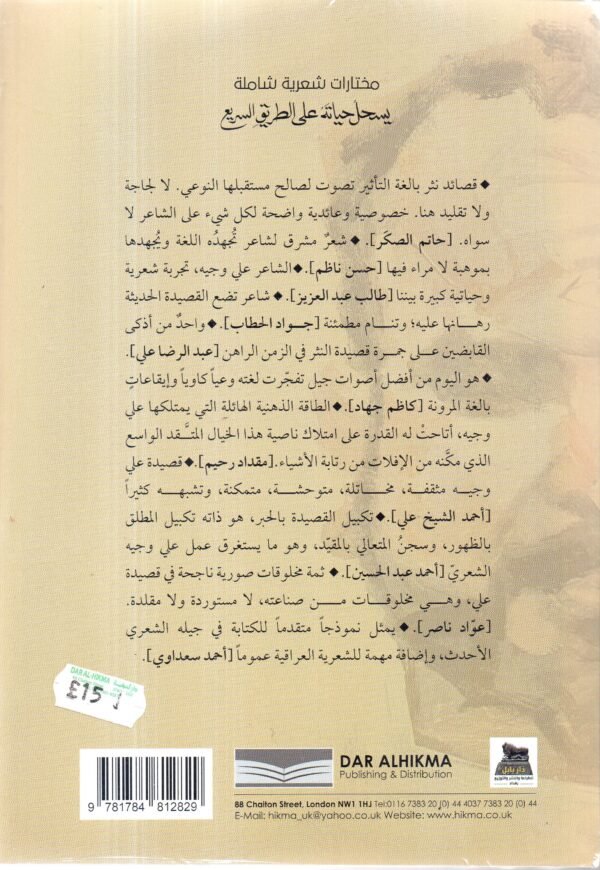 مختارات شعرية شاملة
يسحل حياته على الطريق السريع
◆ قصائد نثر بالغة التأثير تصوت لصالح مستقبلها النوعي. لا لجاجة
ولا تقليد هنا. خصوصية وعائدية واضحة لكل شيء على الشاعر لا
سواه. [حاتم الصكَر]. ◆ شعرٌ مشرق لشاعر تُجهدُه اللغة ويُجهدها
بموهبة لا مراء فيها [حسن ناظم]. ◆الشاعر علي وجيه، تجربة شعرية
وحياتية كبيرة بيننا [طالب عبد العزيز]. ◆ شاعر تضع القصيدة الحديثة
رهانها عليه؛ وتنام مطمئنة [جواد الحطاب]. ◆ واحدٌ من أذكى
القابضين على جمرة قصيدة النثر في الزمن الراهن [عبد الرضا علي].
◆ هو اليوم من أفضل أصوات جيل تفجّرت لغته وعياً كاوياً وإيقاعاتٍ
بالغة المرونة [كاظم جهاد]. ◆ الطاقة الذهنية الهائلة التي يمتلكها علي
وجيه، أتاحتْ له القدرة على امتلاك ناصية هذا الخيال المتَّقد الواسع
الذي مكَّنه من الإفلات من رتابة الأشياء. [مقداد رحيم]. ◆ قصيدة علي
وجيه مثقفة، مخاتلة، متوحشة، متمكنة، وتشبهه كثيراً
[أحمد الشيخ علي]. ◆ تكبيل القصيدة بالحبر، هو ذاته تكبيل المطلق
بالظهور، وسجنُ المتعالي بالمقيّد، وهو ما يستغرق عمل علي وجيه
الشعريّ [أحمد عبد الحسين]. ◆ ثمة مخلوقات صورية ناجحة في قصيدة
علي، وهي مخلوقات من صناعته، لا مستوردة ولا مقلدة.
[عوّاد ناصر]. ◆ يمثل نموذجاً متقدماً للكتابة في جيله الشعري
الأحدث، وإضافة مهمة للشعرية العراقية عموماً [أحمد سعداوي].
DAR AL-HIKMA دار الحكمة
£15
9 781784 812829
DAR ALHIKMA
Publishing & Distribution
دار بابل
88 Chalton Street, London NW1 1HJ Tel:0116 7383 20 (0) 44 4037 7383 20 (0) 44
E-Mail: hikma_uk@yahoo.co.uk Website: www.hikma.co.uk